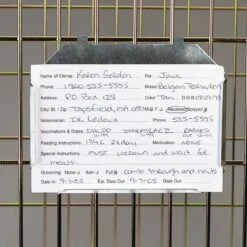 Name of Owner: Karen Gordon Pet: Java
Phone: 1-800-555-5555 Breed: Belgian Tervuren
Address: PO Box 128 Color: Tan
City/St/Zip: Topsfield, MA Neutered/Spayed
Veterinarian: Dr. Ledoux Phone: 555-5555
Vaccinations & Dates: DHLPP RABIES
Feeding Instructions: 2x day Medication: NONE
Special Instructions: must liedown and wait for
meals.
Grooming: None Bath Full comb through and nails
Date In: 9-1-05 Est. Date Out: 9-7-05